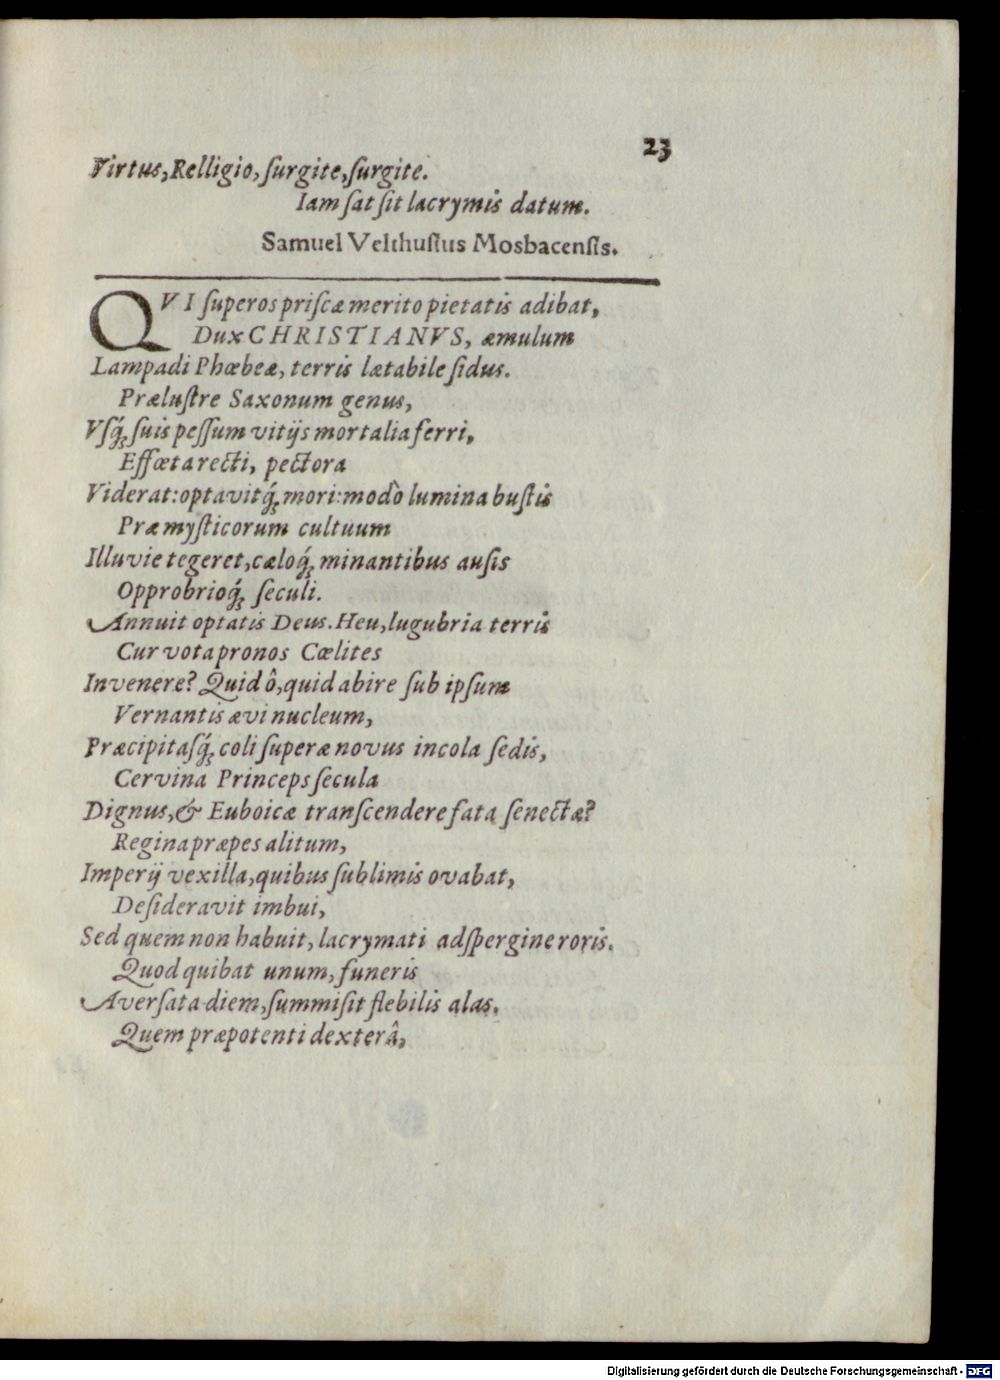 23
Virtus, Relligio, ſurgite, ſurgite.
Iam ſat ſit lacrymis datum.
Samuel Velthuſius Mosbacenſis.
QVI ſuperos priſcæ merito pietatis adibat,
Dux CHRISTIANVS, æmulum
Lampadi Phœbeæ, terris lætabile ſidus.
Præluſtre Saxonum genus,
Vſq́; ſuis peſſum vitijs mortalia ferri,
Effœta recti, pectora
Viderat: optavitq́; mori: modò lumina buſtis
Præ myſticorum cultuum
Illuvie tegeret, cæloq́; minantibus auſis
Opprobrioq́; ſeculi.
Annuit optatis Deus. Heu, lugubria terris
Cur vota pronos Cœlites
Invenere? Quid ô, quid abire ſub ipſum
Vernantis ævi nucleum,
Præcipitaſq́; coli ſuperæ novus incola ſedis,
Cervina Princeps ſecula
Dignus, & Euboicæ tranſcendere fata ſenectæ?
Regina præpes alitum,
Imperij vexilla, quibus ſublimis ovabat,
Deſideravit imbui,
Sed quem non habuit, lacrymati adſpergine roris.
Quod quibat unum, funeris
Averſata diem, ſummiſit flebilis alas.
Quem præpotenti dexterâ,
Digitalisierung gefördert durch die Deutsche Forschungsgemeinschaft - DFG